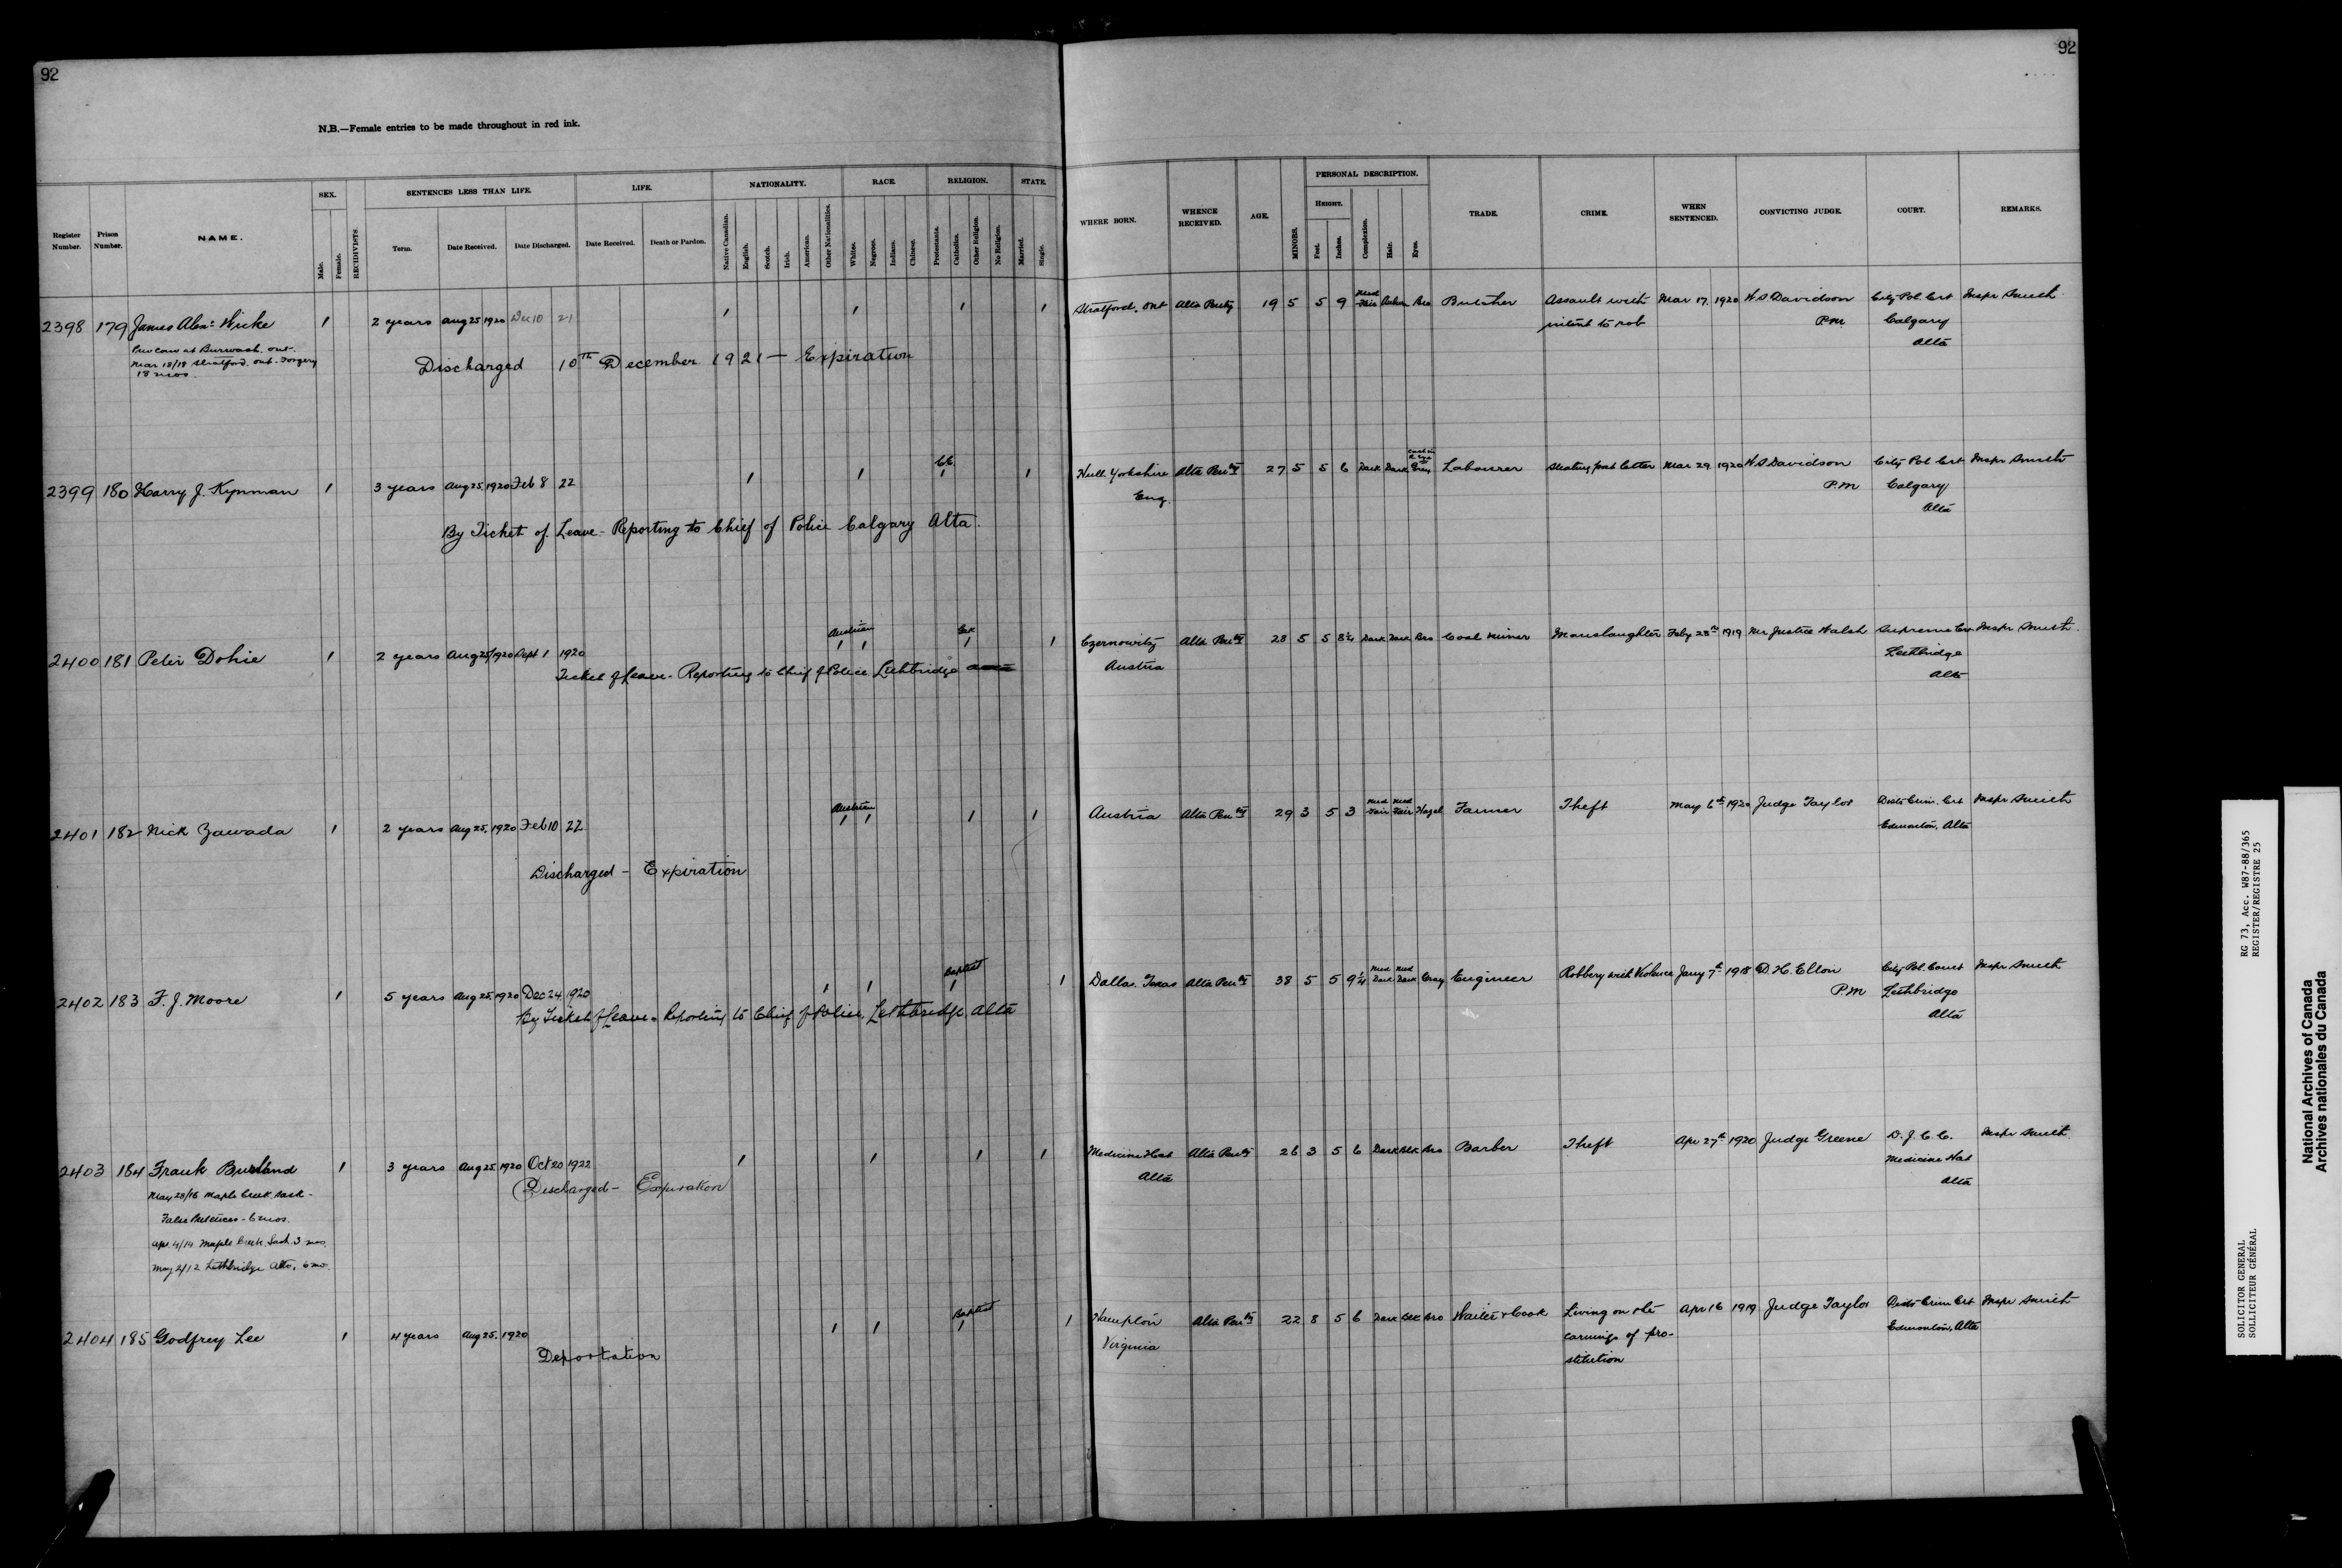 92
92
N.B.—Female entries to be made throughout in red ink.
Register Number.
Prison Number.
NAME.
SEX.
Male.
Female.
RECIDIVISTS.
SENTENCES LESS THAN LIFE.
Term.
Date Received.
Date Discharged.
LIFE.
Date Received.
Death or Pardon.
NATIONALITY.
Native Canadian.
English.
Scotch.
Irish.
American.
Other Nationalities.
RACE.
Whites.
Negroes.
Indians.
Chinese.
RELIGION.
Protestants.
Catholics.
Other Religion.
No Religion.
STATE.
Married.
Single.
WHERE BORN.
WHENCE RECEIVED.
AGE.
MINORS.
PERSONAL DESCRIPTION.
HEIGHT.
Feet.
Inches.
Complexion.
Hair.
Eyes.
TRADE.
CRIME.
WHEN SENTENCED.
CONVICTING JUDGE.
COURT.
REMARKS.
2398 179 James Alexr Wicke 1 2 years Aug 25 1920 Dec 10 21 1 1 1 1 Stratford. Ont Alta Penty 19 5 5 9 Med Fair Auburn Bro Butcher Assault with Mar 17. 1920 W.S. Davidson City Pol Crt Inspr Smith
intent to rob P.M. Calgary
Alta
at Burwash. Ont.
Mar 18/18 Stratford. Ont. Forgery
18 mos.
Discharged 10th December 1921 — Expiration
2399 180 Harry J. Kynman 1 3 years Aug 25 1920 Feb 8 22 1 1 1 1 Hull Yorkshire Alta Penty 27 5 5 6 Dark Dark Gray Labourer Stealing post letter Mar 29. 1920 W.S. Davidson City Pol Crt Inspr Smith
Eng. P.M Calgary
Alta
By Ticket of Leave - Reporting to Chief of Police Calgary Alta.
2400 181 Peter Dohie 1 2 years Aug 25 1920 Sept 1 1920 Austrian 1 1 1 1 Czernowitz Alta Penty 28 5 5 8¼ Dark Dark Bro Coal miner Manslaughter Feby 28th 1919 Mr Justice Walsh Supreme Crt Inspr Smith.
Austria Lethbridge
Alta
Ticket of Leave - Reporting to Chief of Police Lethbridge
2401 182 Nick Zawada 1 2 years Aug 25. 1920 Feb 10 22 Austrian 1 1 1 1 Austria Alta Penty 29 3 5 3 Med Fair Med Fair Hazel Farmer Theft May 6th 1920 Judge Taylor Dist Crim. Crt Inspr Smith
Edmonton, Alta
Discharged - Expiration
2402 183 F. J. Moore 1 5 years Aug 25. 1920 Dec 24 1920 1 1 Baptist 1 1 Dallas. Texas Alta Penty 38 5 5 9¼ Med Dark Med Dark Gray Engineer Robbery with Violence Jany 7th 1918 D. H. Elton City Pol. Court Inspr Smith
P.M Lethbridge
Alta
By Ticket of Leave. Reporting to Chief of Police, Lethbridge, Alta
2403 184 Frank Burland 1 3 years Aug 25. 1920 Oct 20 1922 1 1 1 1 Medicine Hat Alta Penty 26 3 5 6 Dark Blk Bro Barber Theft Apr 27th 1920 Judge Greene D. J. C. C. Inspr Smith
Alta Medicine Hat
Alta
Discharged - Expiration
May 23/16 Maple Creek. Sask -
False Pretences - 6 mos.
Apr. 4/14 Maple Creek. Sask. 3 mos.
May 2/12 Lethbridge Alta, 6 mo.
2404 185 Godfrey Lee 1 4 years Aug 25. 1920 1 1 Baptist 1 1 Hampton Alta Penty 22 8 5 6 Dark Blk Bro Waiter & Cook Living on the Apr 16 1919 Judge Taylor Dist Crim Crt Inspr Smith
Virginia earnings of pro- Edmonton, Alta
stitution
Deportation
RG 73, Acc. W87-88/365
REGISTER/REGISTRE 25
SOLICITOR GENERAL
SOLLICITEUR GÉNÉRAL
National Archives of Canada
Archives nationales du Canada